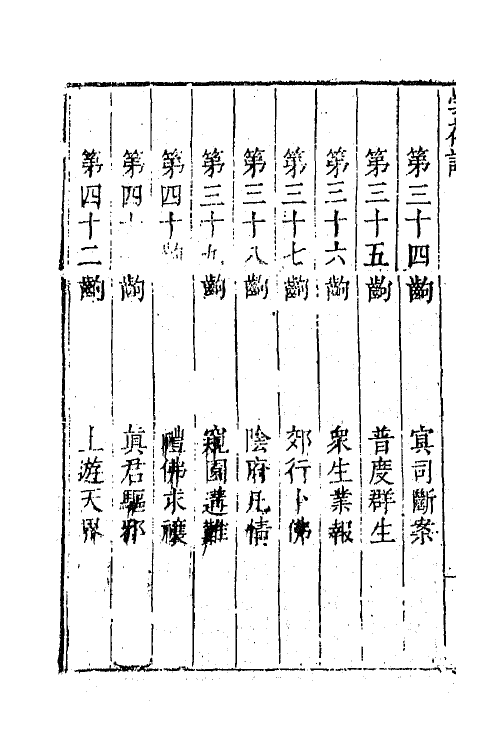 第三十四齣　冥司斷案
第三十五齣　普度群生
第三十六齣　衆生業報
第三十七齣　郊行卜佛
第三十八齣　陰府凡情
第三十九齣　窺園遘難
第四十齣　禮佛求禳
第四十一齣　真君驅邪
第四十二齣　上遊天界